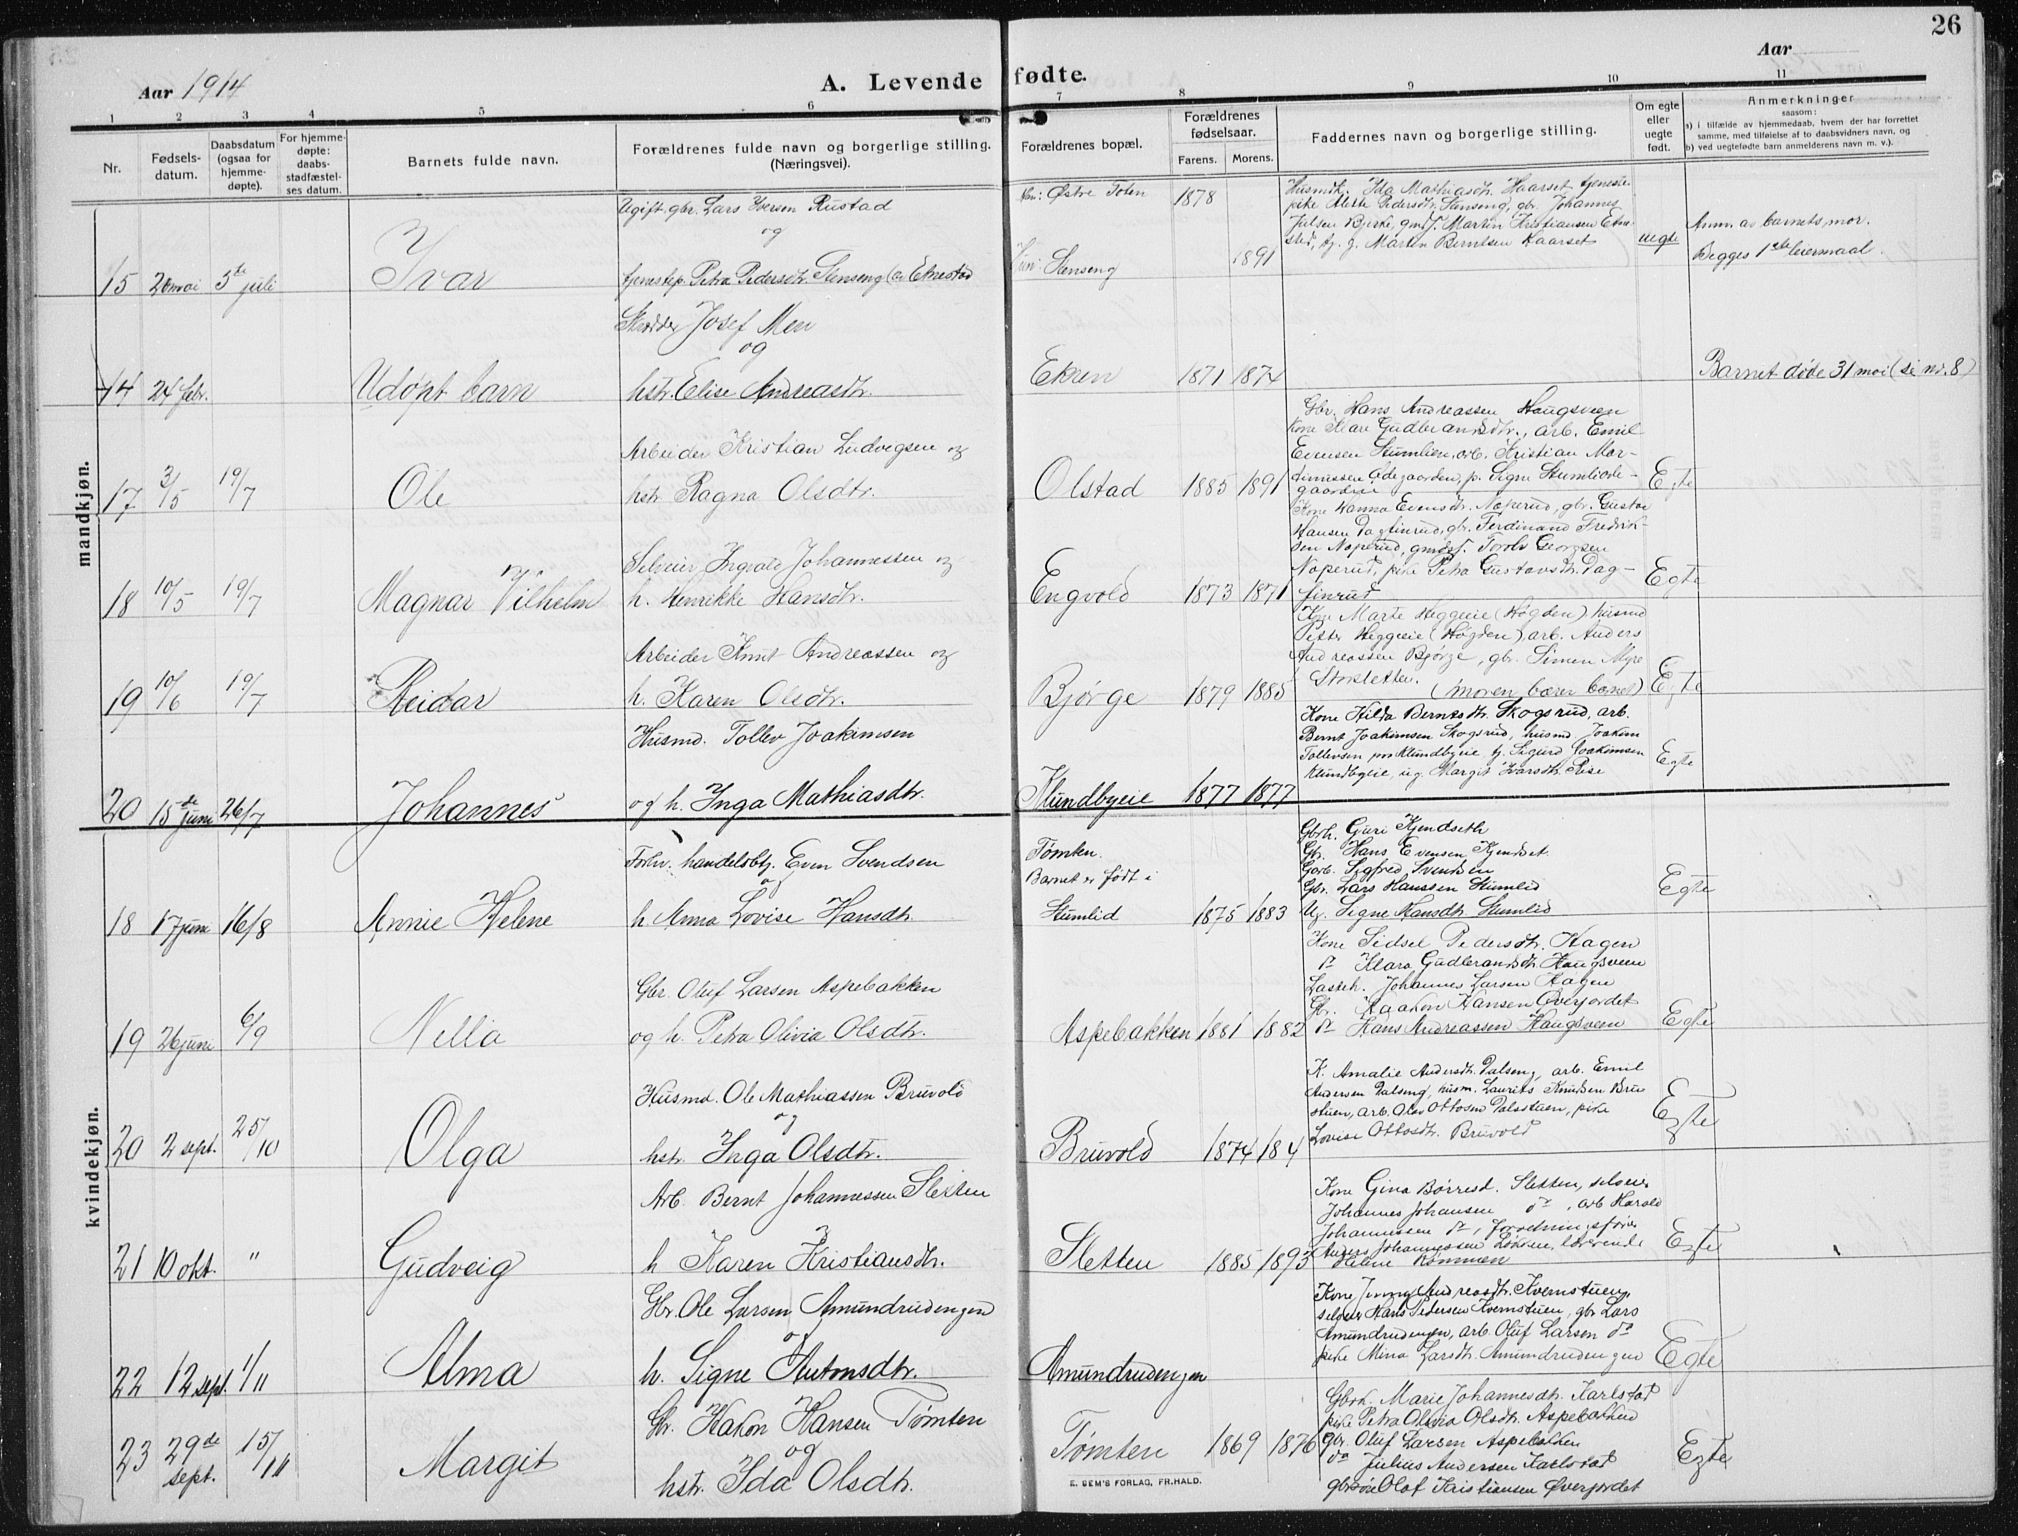 26
Aar 1914
A. Levende fødte.
Aar
1 2 3 4 5 6 7 8 9 10 11
Nr.
Fødsels-
datum.
Daabsdatum
(ogsaa for
hjemme-
døpte).
For hjemme-
døpte:
daabs-
stadfæstel-
ses datum.
Barnets fulde navn.
Forældrenes fulde navn og borgerlige stilling.
(Næringsvei).
Forældrenes bopæl.
Forældrenes
fødselsaar.
Farens. Morens.
Faddernes navn og borgerlige stilling.
Om egte
eller
uegte
født.
Anmerkninger
saasom:
a) i tilfælde av hjemmedaab, hvem der har forrettet
samme, med tilføielse af to daabsvidners navn, og
b) ved uegtefødte barn anmelderens navn m. v.).
mandkjøn.
Ugift gbr. Lars Iversen Rustad
og
15 26 mai 5te juli Ivar
tjenestep. Petra Pedersdtr. Stenseng
Østre Toten 1878
Stenseng 1891
Husmk. Ida Mathiasdtr. Haarset tjeneste-
pike Pedersdtr. Stenseng, gbr. Johannes
Julsen Bjerke, Martin Kristiansen
Martin Berntsen Kaarset
uegte
Anm. av barnets mor.
Begges 1ste leiermaal.
Josef Men
og
14 24 febr. Udøpt barn
hstr. Elise Andreasdtr.
Ekren 1871 1874
Barnet døde 31 mai (se nr. 8)
Arbeider Kristian Ludvigsen og
17 3/5 19/7 Ole
hstr. Ragna Olsdtr.
Olstad 1885 1891
Gbr. Hans Andreassen Haugsveen
Kone Klare Gudbrandsdtr., arb. Emil
Evensen Stumlien, arb. Kristian Mar-
tinussen Ødegaarden, p. Signe Stumliøde-
gaarden
Egte
Selveier Ingvald Johannessen og
18 10/5 19/7 Magnar Vilhelm
h. Henrikke Hansdtr.
Engvold 1873 1871
Kone Hanna Evensdtr. Naperud, gbr. Gustav
Hansen Dagfinrud, gbr. Ferdinand Fredrik-
sen Naperud, Torolv Georgsen
Naperud, pike Petra Gustavsdtr. Dag-
finrud
Egte
Arbeider Knut Andreassen og
19 10/6 19/7 Reidar
h. Karen Olsdtr.
Bjørge 1879 1885
Kone Marte Heggeeie (Høgden) husmd
Petter Heggeeie (Høgden), arb. Anders
Andreassen Bjørge, gbr. Simen Myre
Storsletten. (moren bærer barnet)
Egte
Husmd. Tollev Joakimsen
20 15de juni 26/7 Johannes
og h. Inga Mathiasdtr.
Klundbyeie 1877 1877
Kone Hilda Berntsdtr. Skogsrud, arb.
Bernt Joakimsen Skogsrud, husmd Joakim
Tollevsen Klundbyeie tj. Sigurd Joakimsen
Klundbyeie, ug. Margit Ivarsdtr. Rise
Egte
kvindekjøn.
Forhv. handelsbtj. Even Svendsen
og
18 17 juni 16/8 Annie Helene
h Anna Lovise Hansdtr.
Tømten.
Barnet er født i
Stumlid 1875 1883
Gbrh. Guri Kjendseth
Gbr. Hans Evensen Kjendset
Garb. Sigfred Svendsen
Gbr. Lars Hanssen Stumlid
Ug. Signe Hansdtr. Stumlid
Egte
Gbr. Oluf Larsen Aspebakken
19 26 juni 6/9 Nella
og h. Petra Olivia Olsdtr.
Aspebakken 1881 1882
Kone Sidsel Pedersdtr. Hagen
do Klara Gudbrandsdtr. Haugsveen
Johannes Larsen Hagen
Gbr. Haakon Hansen Øverjordet
do Hans Andreassen Haugsveen
Egte
Husmd. Ole Mathiassen Bruvold
og
20 2 sept. 25/10 Olga
hstr. Inga Olsdtr.
Bruvold 1874 184
K. Amalie Andersdtr. Dalseng, arb. Emil
Andersen Dalseng, husm. Laurits Knudsen Bru-
stuen, arb. Olav Ottosen Dalsstuen, pike
Lovise Ottosdtr. Bruvold
Egte
Arb. Bernt Johannessen Sletten
21 10 okt. " Gudveig
h Karen Kristiansdtr.
Sletten 1885 1893
Kone Gina Børresd. Sletten, selveier
Johannes Johansen do, arb Harald
Johannessen do, forretningsfører
Anders Johannessen Løkken, lærerinde
Helene Rømmen
Egte
Gbr. Ole Larsen Amundrudengen
og
22 12 sept. 1/11 Alma
h. Signe Antonsdtr.
Amundrudengen
Kone Jenny Andreasdtr. Kvernstuen,
selveier Hans Pedersen Kvernstuen, gbr Lars
Amundrudengen, arb. Oluf Larsen do
pike Mina Larsdtr. Amundrudengen
Egte
Gbr. Hakon Hansen Tømten
og
23 29de sept. 15/11 Margit
hstr. Ida Olsdtr.
Tømten 1869 1876
Gbrk. Marie Johannesdtr. Karlstad
pike Petra Olivia Olsdtr. Aspebakken
gbr. Oluf Larsen Aspebakken
do Julius Andersen Karlstad
gbrsøn Olaf Kristiansen Øverjordet
Egte
E. SEM'S FORLAG, FR.HALD.